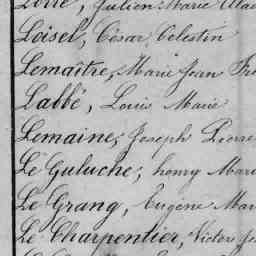 Julien Marie
Loisel, César Célestin
Lemaître, Marie Jean
Labbé, Louis Marie
Lemaine, Joseph Pierre
Le Guluche, henry
Le Grang, Eugène
Le Charpentier, Victor